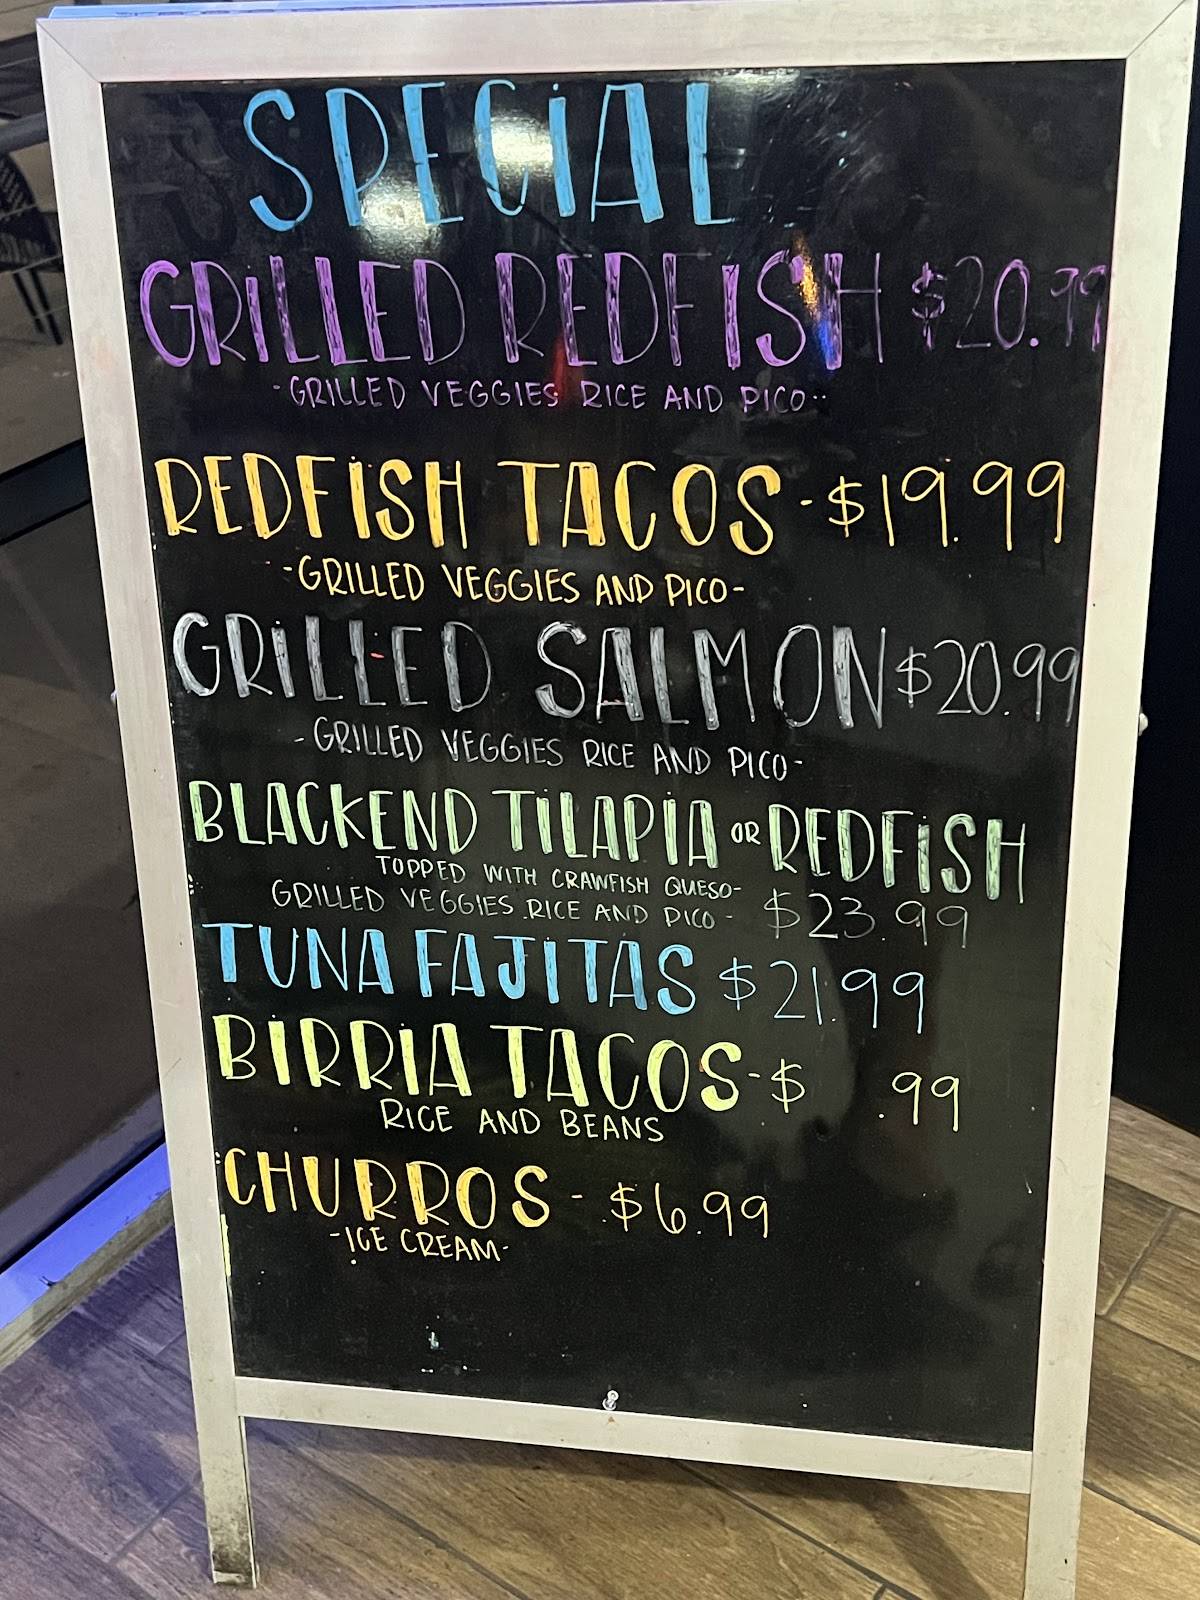 SPECIAL
GRILLED REDFISH $20.99
-GRILLED VEGGIES RICE AND PICO--
REDFISH TACOS - $19.99
-GRILLED VEGGIES AND PICO-
GRILLED SALMON $20.99
-GRILLED VEGGIES RICE AND PICO-
BLACKEND TILAPIA OR REDFISH
TOPPED WITH CRAWFISH QUESO-
GRILLED VEGGIES RICE AND PICO- $23.99
TUNA FAJITAS $21.99
BIRRIA TACOS - $ .99
RICE AND BEANS
CHURROS - $6.99
-ICE CREAM-